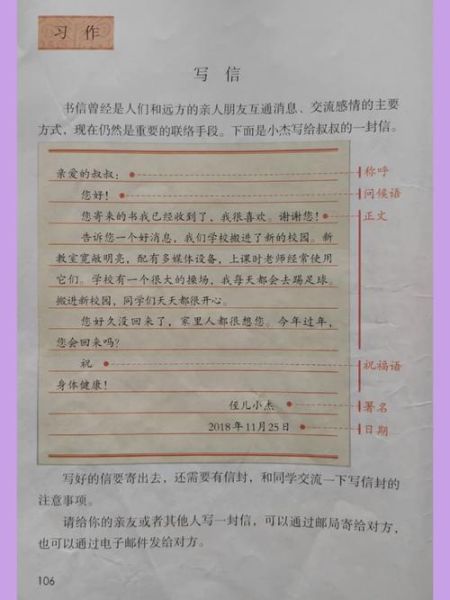 习 作
写 信
书信曾经是人们和远方的亲人朋友互通消息、交流感情的主要
方式，现在仍然是重要的联络手段。下面是小杰写给叔叔的一封信。
亲爱的叔叔： 称呼
您好！ 问候语
您寄来的书我已经收到了，我很喜欢。谢谢您！ 正文
告诉您一个好消息，我们学校搬进了新的校园。新
教室宽敞明亮，配有多媒体设备，上课时老师经常使用
它们。学校有一个很大的操场，我每天都会去踢足球。
搬进新校园，同学们天天都很开心。
您好久没回来了，家里人都很想您。今年过年，
您会回来吗？
祝 祝福语
身体健康！
侄儿小杰 署名
2018年11月25日 日期
写好的信要寄出去，还需要有信封，和同学交流一下写信封的
注意事项。
请给你的亲友或者其他人写一封信，可以通过邮局寄给对方，
也可以通过电子邮件发给对方。
106